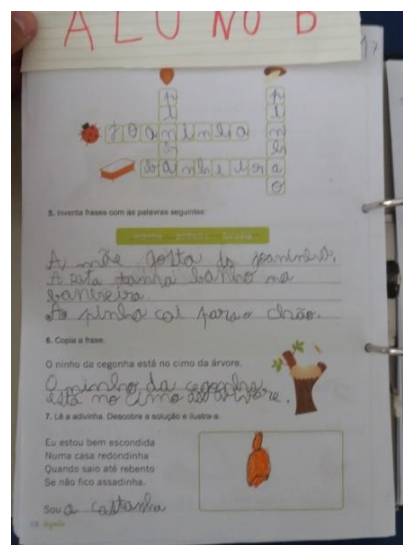 ALUNO B
17
pinha
pinhão
joaninha
banheira
5. Inventa frases com as palavras seguintes:
A mãe gosta da joaninha.
A rata toma banho na
banheira.
A pinha cai para o chão.
6. Copia a frase.
O ninho da cegonha está no cimo da árvore.
O ninho da cegonha
está no cimo da árvore.
7. Lê a adivinha. Descobre a solução e ilustra-a.
Eu estou bem escondida
Numa casa redondinha
Quando saio até rebento
Se não fico assadinha.
Sou a castanha